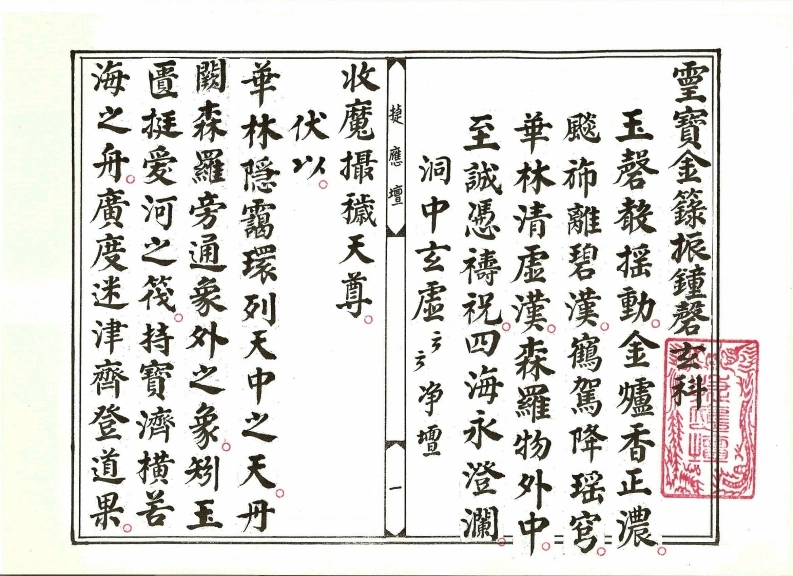 靈寶金籙振鐘磬玄科
玉磬敲揺動。金爐香正濃。
颷斾離碧漢。鶴駕降瑶穹。
華林清虚漢。森羅物外中。
至誠憑禱祝。四海永澄瀾。
洞中玄虚云云净壇
捷應壇
一
收魔攝穢天尊。
伏以。
華林隠靄環列天中之天。丹
闕森羅旁通象外之象。矧玉
匱挺愛河之筏。持寶濟横苦
海之舟。廣度迷津齊登道果。